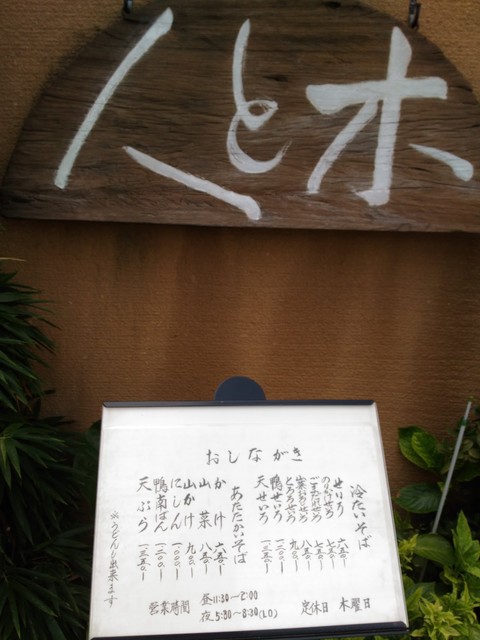 木と人
おしながき
冷たいそば
せいろ 六五〇ー
のりかけせいろ 七五〇ー
ごまだれせいろ 七五〇ー
せいろ 八五〇ー
とろろせいろ 九〇〇ー
鴨せいろ 一二〇〇ー
天せいろ 一三五〇ー
あたたかいそば
かけ 六五〇ー
山菜 八五〇ー
山かけ 九〇〇ー
にしん 一〇〇〇ー
鴨南ばん 一二〇〇ー
天ぷら 一三五〇ー
※うどんも出来ます
営業時間 昼11:30〜2:00
夜5:30〜8:30(LO)
定休日 木曜日